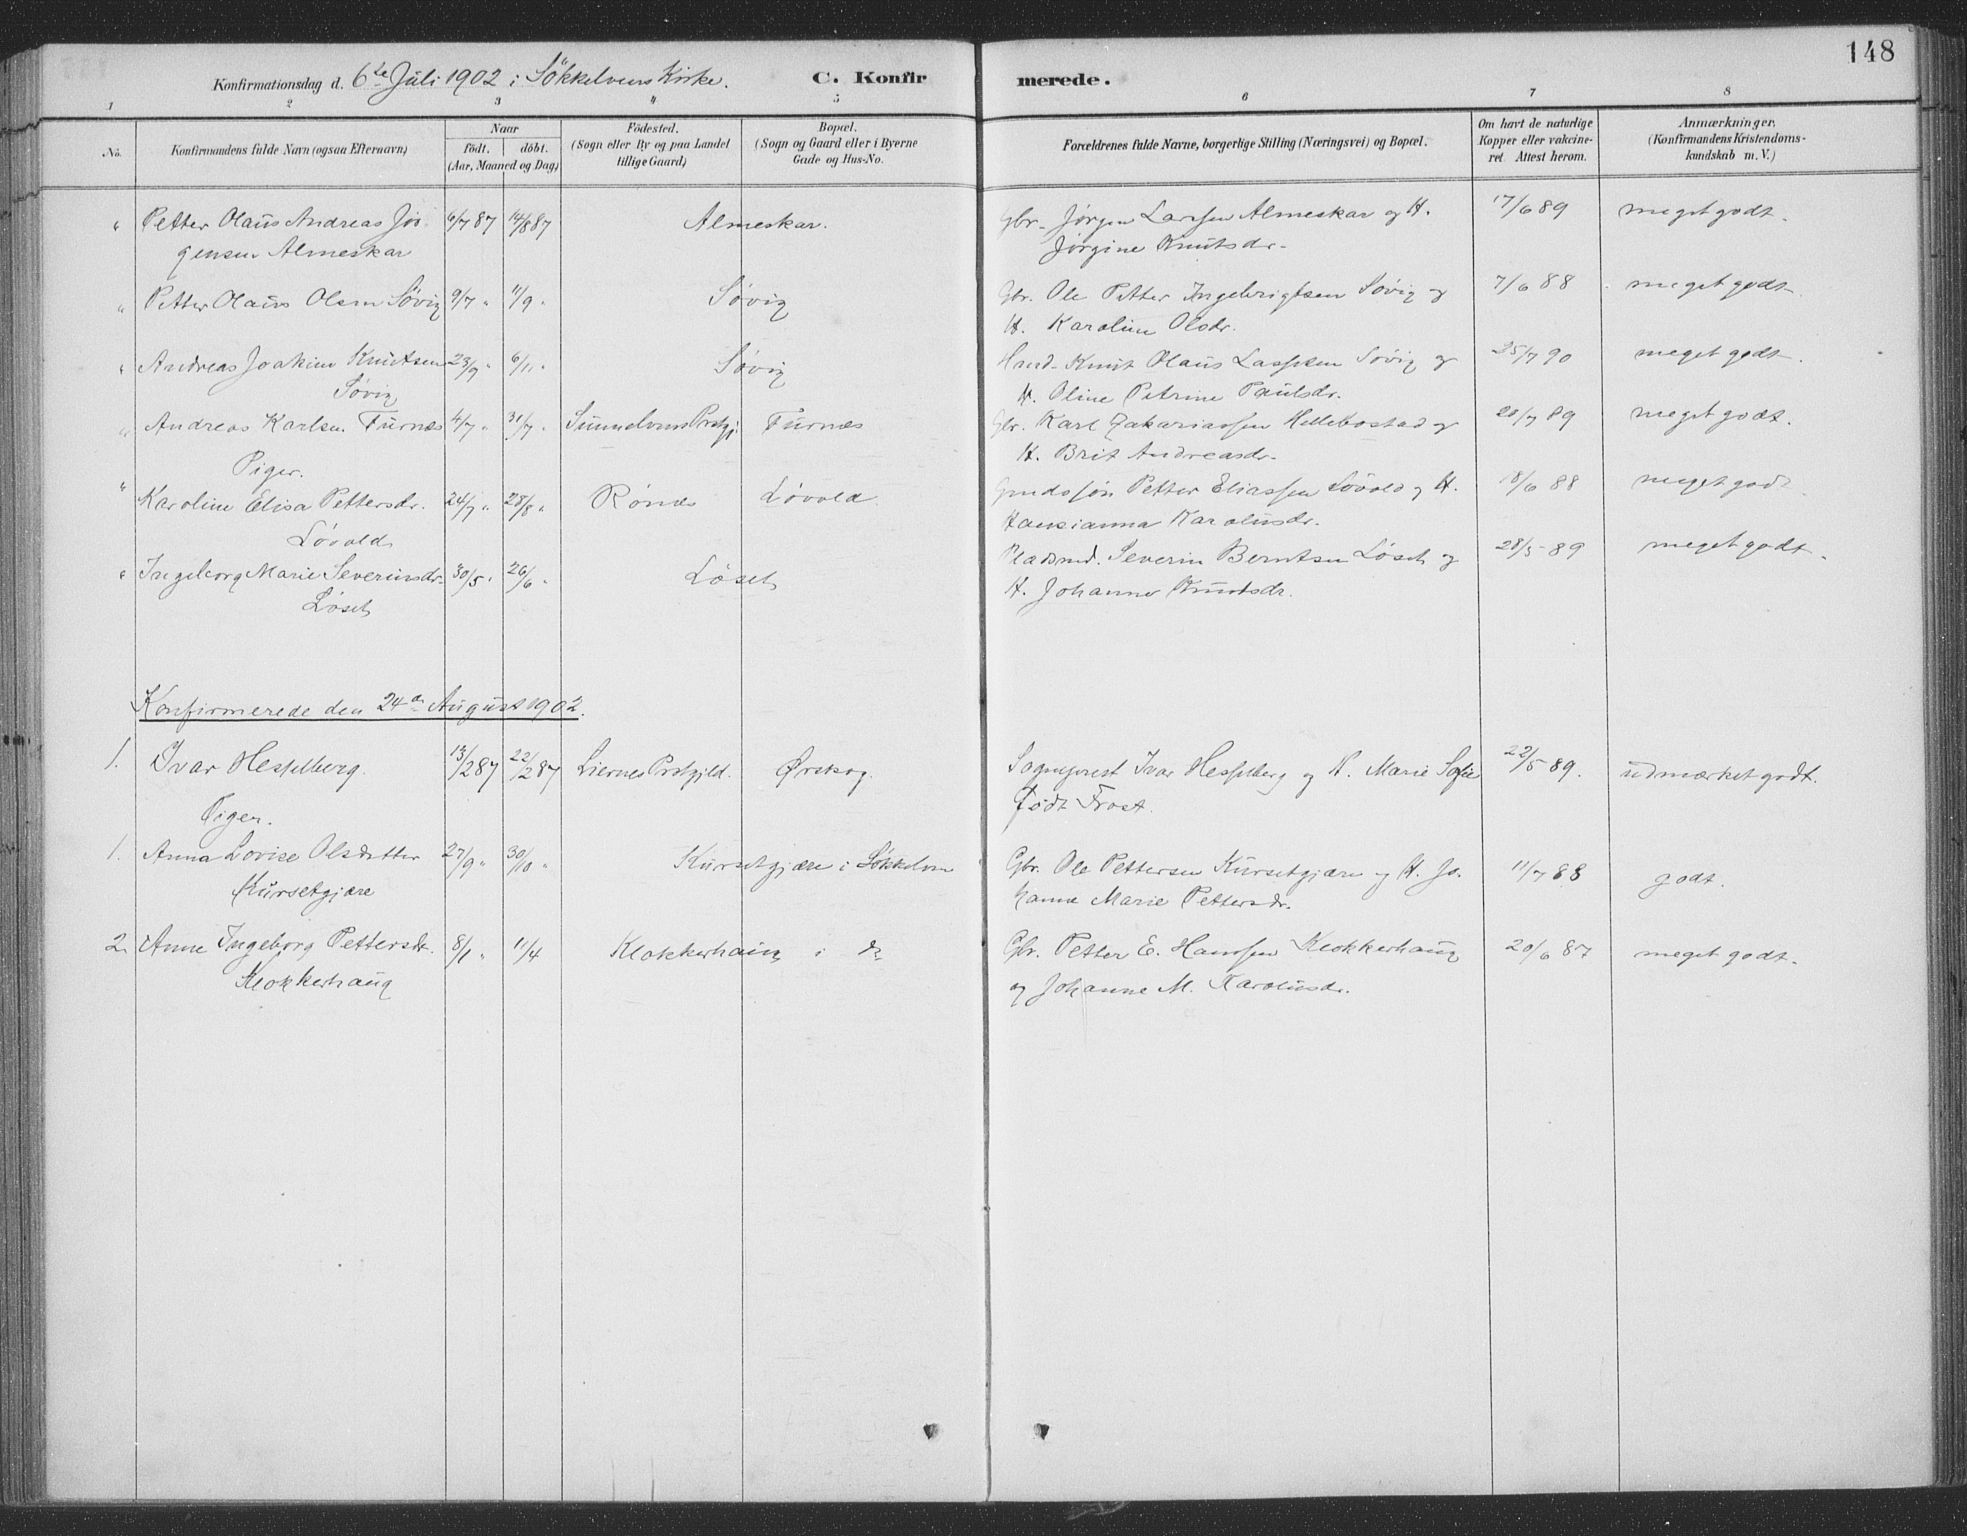 148
Konfirmationsdag d. 6te Juli 1902 i Søkkelvens Kirke. C. Konfirmerede.
1 2 3 4 5 6 7 8
No. Konfirmandens fulde Navn (ogsaa Efternavn) Naar födt. döbt. (Aar, Maaned og Dag) Födested. (Sogn eller By og paa Landet tillige Gaard) Bopæl. (Sogn og Gaard eller i Byerne Gade og Hus-No. Forældrenes fulde Navne, borgerlige Stilling (Næringsvei) og Bopæl. Om havt de naturlige Kopper eller vakcineret Attest herom. Anmærkninger. (Konfirmandens Kristendomskundskab m. V.)
" Petter Olaus Andreas Jør- 6/7 87 14/8 87 Almeskar. Gbr. Jørgen Larssen Almeskar og H. 17/6 89 meget godt.
gensen Almeskar Jørgine Knutsdr.
" Petter Olaus Olsen Søvig 9/7 " 11/9 " Søvig Gbr. Ole Petter Ingebrigtsen Søvig og 7/6 88 meget godt
H. Karoline Olsdr.
" Andreas Joakim Knutsen 23/9 " 6/11 " Søvig Knut Olaus Lassesen Søvig og 25/7 90 meget godt.
Søvig H. Oline Petrine Paulsdr.
" Andreas Karlsen Furnæs 4/7 " 31/7 " Sunnelvens Prstgj. Furnæs Gbr. Karl Zakariassen Hellebostad og 20/7 89 meget godt.
Piger. H. Brit Andreasdr.
" Karoline Elisa Pettersdr. 24/7 " 28/8 " Rønæs Løvold. Petter Eliassen Løvold og H. 18/6 88 meget godt.
Løvold Hansianna Karolusdr.
" Ingeborg Marie Severinsdr. 30/5 " 26/6 " Løset Pladsmd. Severin Berntsen Løset og 28/5 89 meget godt.
Løset H. Johanne Knutsdr.
Konfirmerede den 24de August 1902.
1. Ivar Hesselberg. 13/2 87 22/2 87 Liernes Prstgjeld. Ørskog. Sogneprest Ivar Hesselberg og H. Marie Sofie 22/5 89. udmærket godt.
Piger. født Frost.
1. Anna Lovise Olsdatter 27/9 " 30/10 " Kursetgjære i Søkkelven Gbr. Ole Pettersen Kursetgjære og H. Jo- 11/7 88 godt.
Kursetgjære hanne Marie Pettersdr.
2. Anne Ingeborg Pettersdr. 8/1 " 11/4 Klokkerhaug i do Gbr. Petter E. Hanssen Klokkerhaug 20/6 87 meget godt.
Klokkerhaug og Johanne M. Karolusdr.